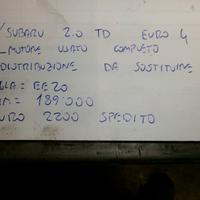 SUBARU 2.0 TD EURO 4
MOTORE USATO COMPLETO
DISTRIBUZIONE DA SOSTITUIRE
EE20
189.000
EURO 2200 SPEDITO